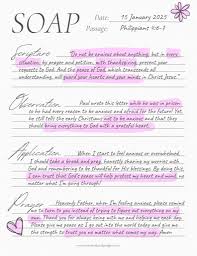 SOAP
Date: 15 January 2025
Passage: Philippians 4:6-7
Scripture "Do not be anxious about anything, but in every
situation, by prayer and petition, with thanksgiving, present your
requests to God. And the peace of God, which transcends all
understanding, will guard your hearts and your minds in Christ Jesus."
Observation Paul wrote this letter while he was in prison
to be had every reason to be anxious and afraid for the future. Yet
he still encouraged everyone not to be anxious about anything but to
bring everything to God with a grateful heart.
Application When I start to feel anxious or overwhelmed,
I should take a break and pray, honestly sharing my worries with
God and remembering to be thankful for His blessings. By doing this,
I trust that God's peace will help protect my heart and mind, no matter
what I'm going through!
Prayer Heavenly Father, when I'm feeling anxious, please remind
me to turn to you instead of trying to figure out everything on my
own. Thank you for always being there and for giving me
peace that is beyond what I can understand. Please help me
to trust you no matter what comes my way. Amen